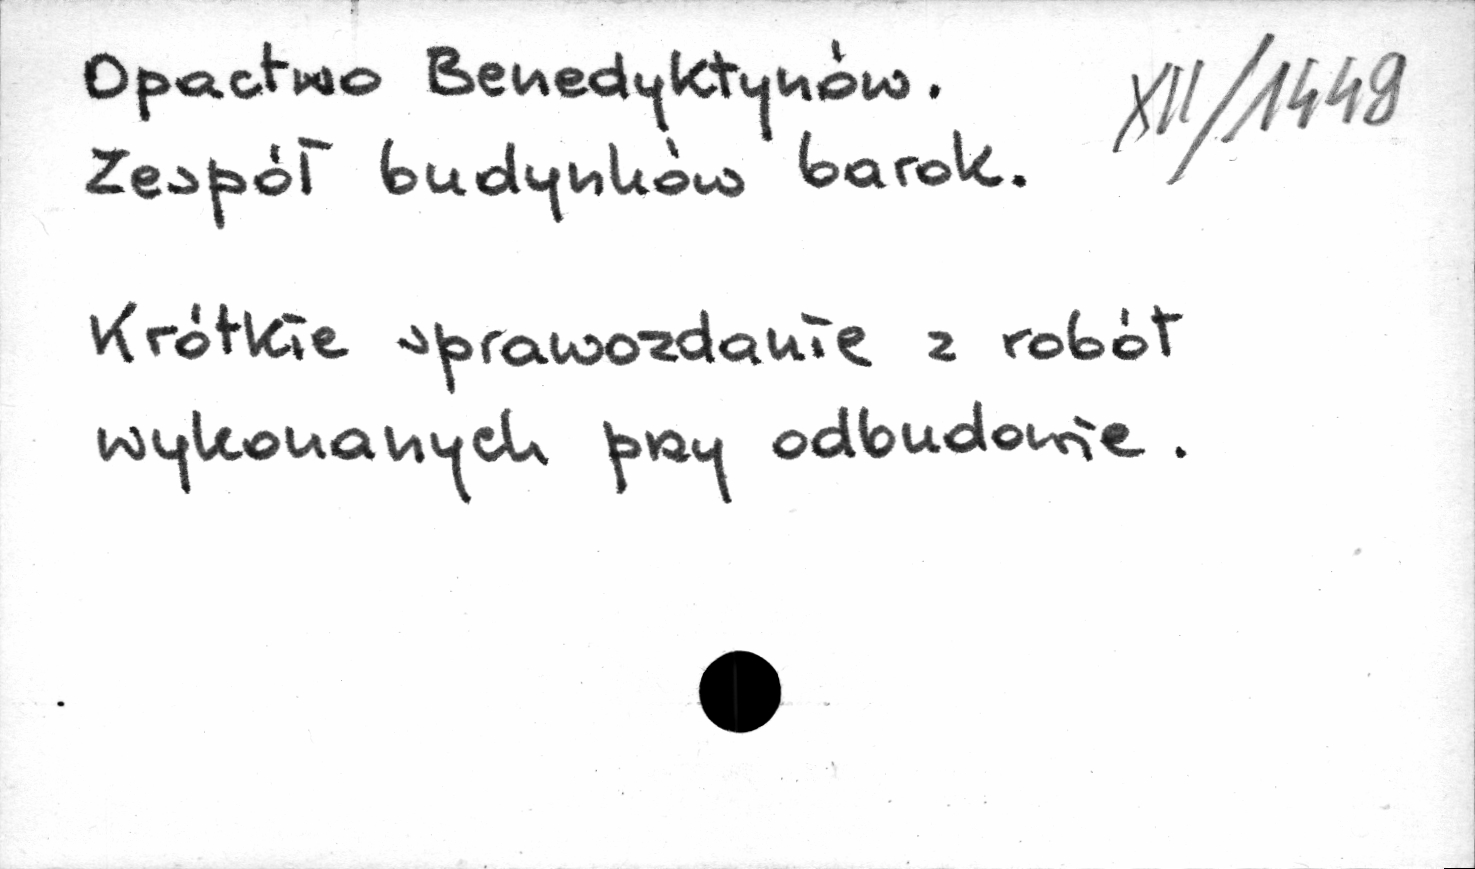 Opactwo Benedyktynów. XII/1449
Zespół budynków barok.
Krótkie sprawozdanie z robót
wykonanych przy odbudowie.